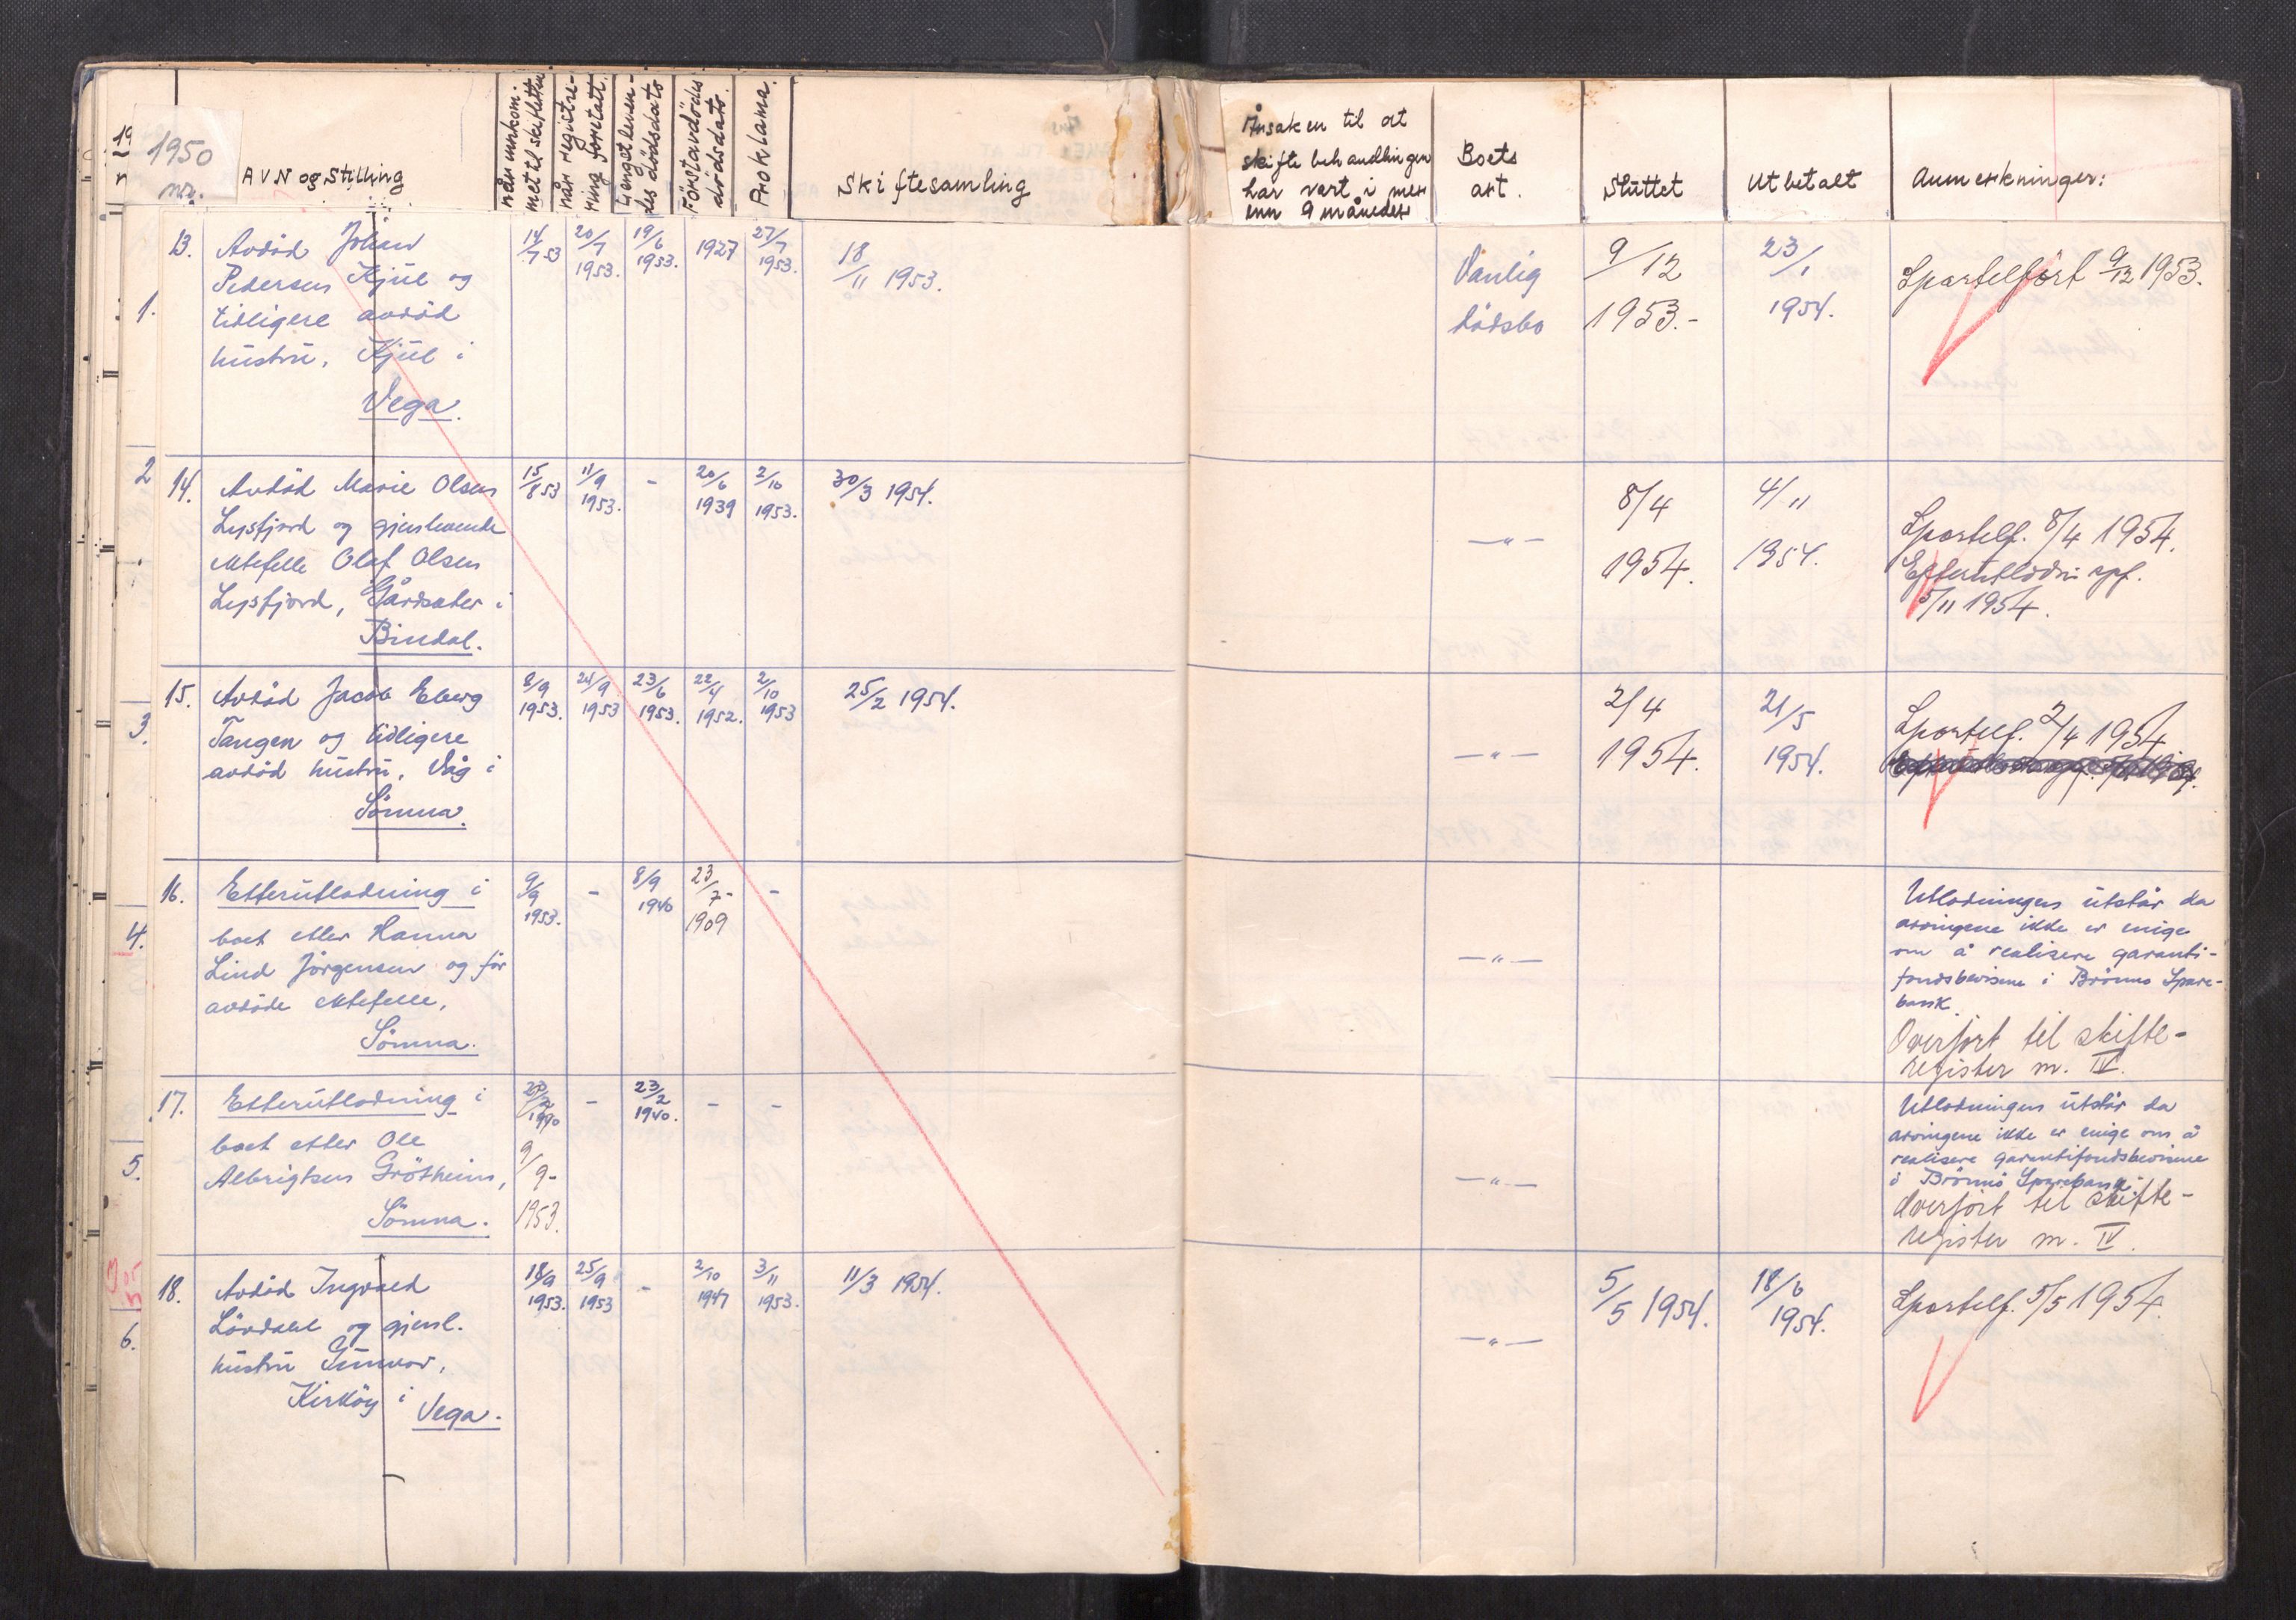 1950
nr.
AVN og Stilling
når innkom-
met til skifteretten
når registre-
ring foretatt.
Lengstleven-
des dødsdato
Förstavdödes
dödsdato.
Proklama.
Skiftesamling
Årsaken til at
skifte behandlingen
har vart i mer
enn 9 måneder
Boets
art.
Sluttet
Utbetalt
Anmerkninger:
13. Avdöd Johan
Pedersen Kjul og
tidligere avdöd
hustru, Kjul i
Vega.
14/7 53
20/7 1953.
19/6 1953.
1927
27/7 1953.
18/11 1953.
Vanlig
dödsbo
9/12
1953.-
23/1
1954.
Sportelfört 9/12 1953.
14. Avdöd Marie Olsen
Lysfjord og gjenlevende
ektefelle Olaf Olsen
Lysfjord, Gårdsæter i
Bindal.
15/8 53
11/9 1953.
-
20/6 1939
2/10 1953.
30/3 1954.
-"-
8/4
1954.
4/11
1954.
Sportelf. 8/4 1954.
Efterutlodn. spf.
5/11 1954.
15. Avdöd Jacob Eberg
Tangen og tidligere
avdöd hustru, Våg i
Sömna.
8/9 1953.
24/9 1953
23/6 1953.
22/4 1952.
2/10 1953
25/2 1954.
-"-
2/4
1954.
21/5
1954.
Sportelf. 2/4 1954
16. Etterutlodning i
boet etter Hanna
Lind Jörgensen og för
avdöde ektefelle,
Sömna.
9/9 1953.
-
8/9 1940
23/7- 1909
-
-"-
Utlodningen utstår da
arvingene ikke er enige
om å realisere garanti-
fondsbevisene i Brönnö Spare-
bank.
Overfört til skifte-
register nr. IV.
17. Etterutlodning i
boet etter Ole
Albrigtsen Grötheim,
Sömna.
23/2 1940
9/9-
1953.
-
23/2 1940.
-
-
-"-
Utlodningen utstår da
arvingene ikke er enige om å
realisere garantifondsbevisene
i Brönnö Sparebank.
Overfört til skifte-
register nr. IV.
18. Avdöd Ingvald
Lövdahl og gjenl.
hustru Gunvor,
Kirköy i Vega.
18/9 1953.
25/9 1953
-
2/10 1947
3/11 1953.
11/3 1954.
-"-
5/5 1954.
18/6
1954.
Sportelf. 5/5 1954.
19
n
1.
2
3.
4.
5.
6.